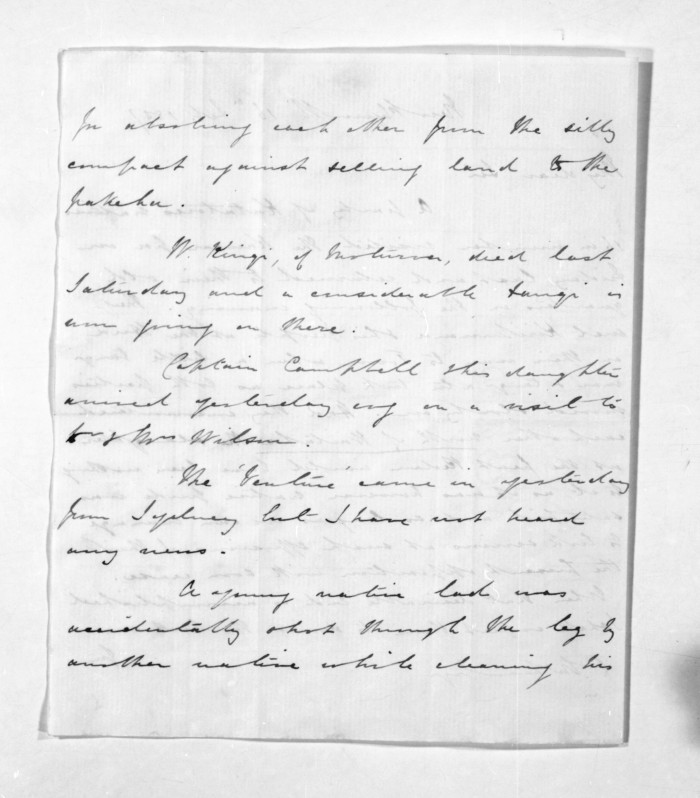 In absolving each other from the silly
compact against selling land to the
pakeha.
W. Kingi, of Motueka, died last
Saturday and a considerable tangi is
now going on there.
Captain Campbell & his daughter
arrived yesterday evg on a visit to
Dr & Mrs Wilson.
The 'Venture' came in yesterday
from Sydney but I have not heard
any news.
A young native lad was
accidentally shot through the leg by
another native while cleaning his